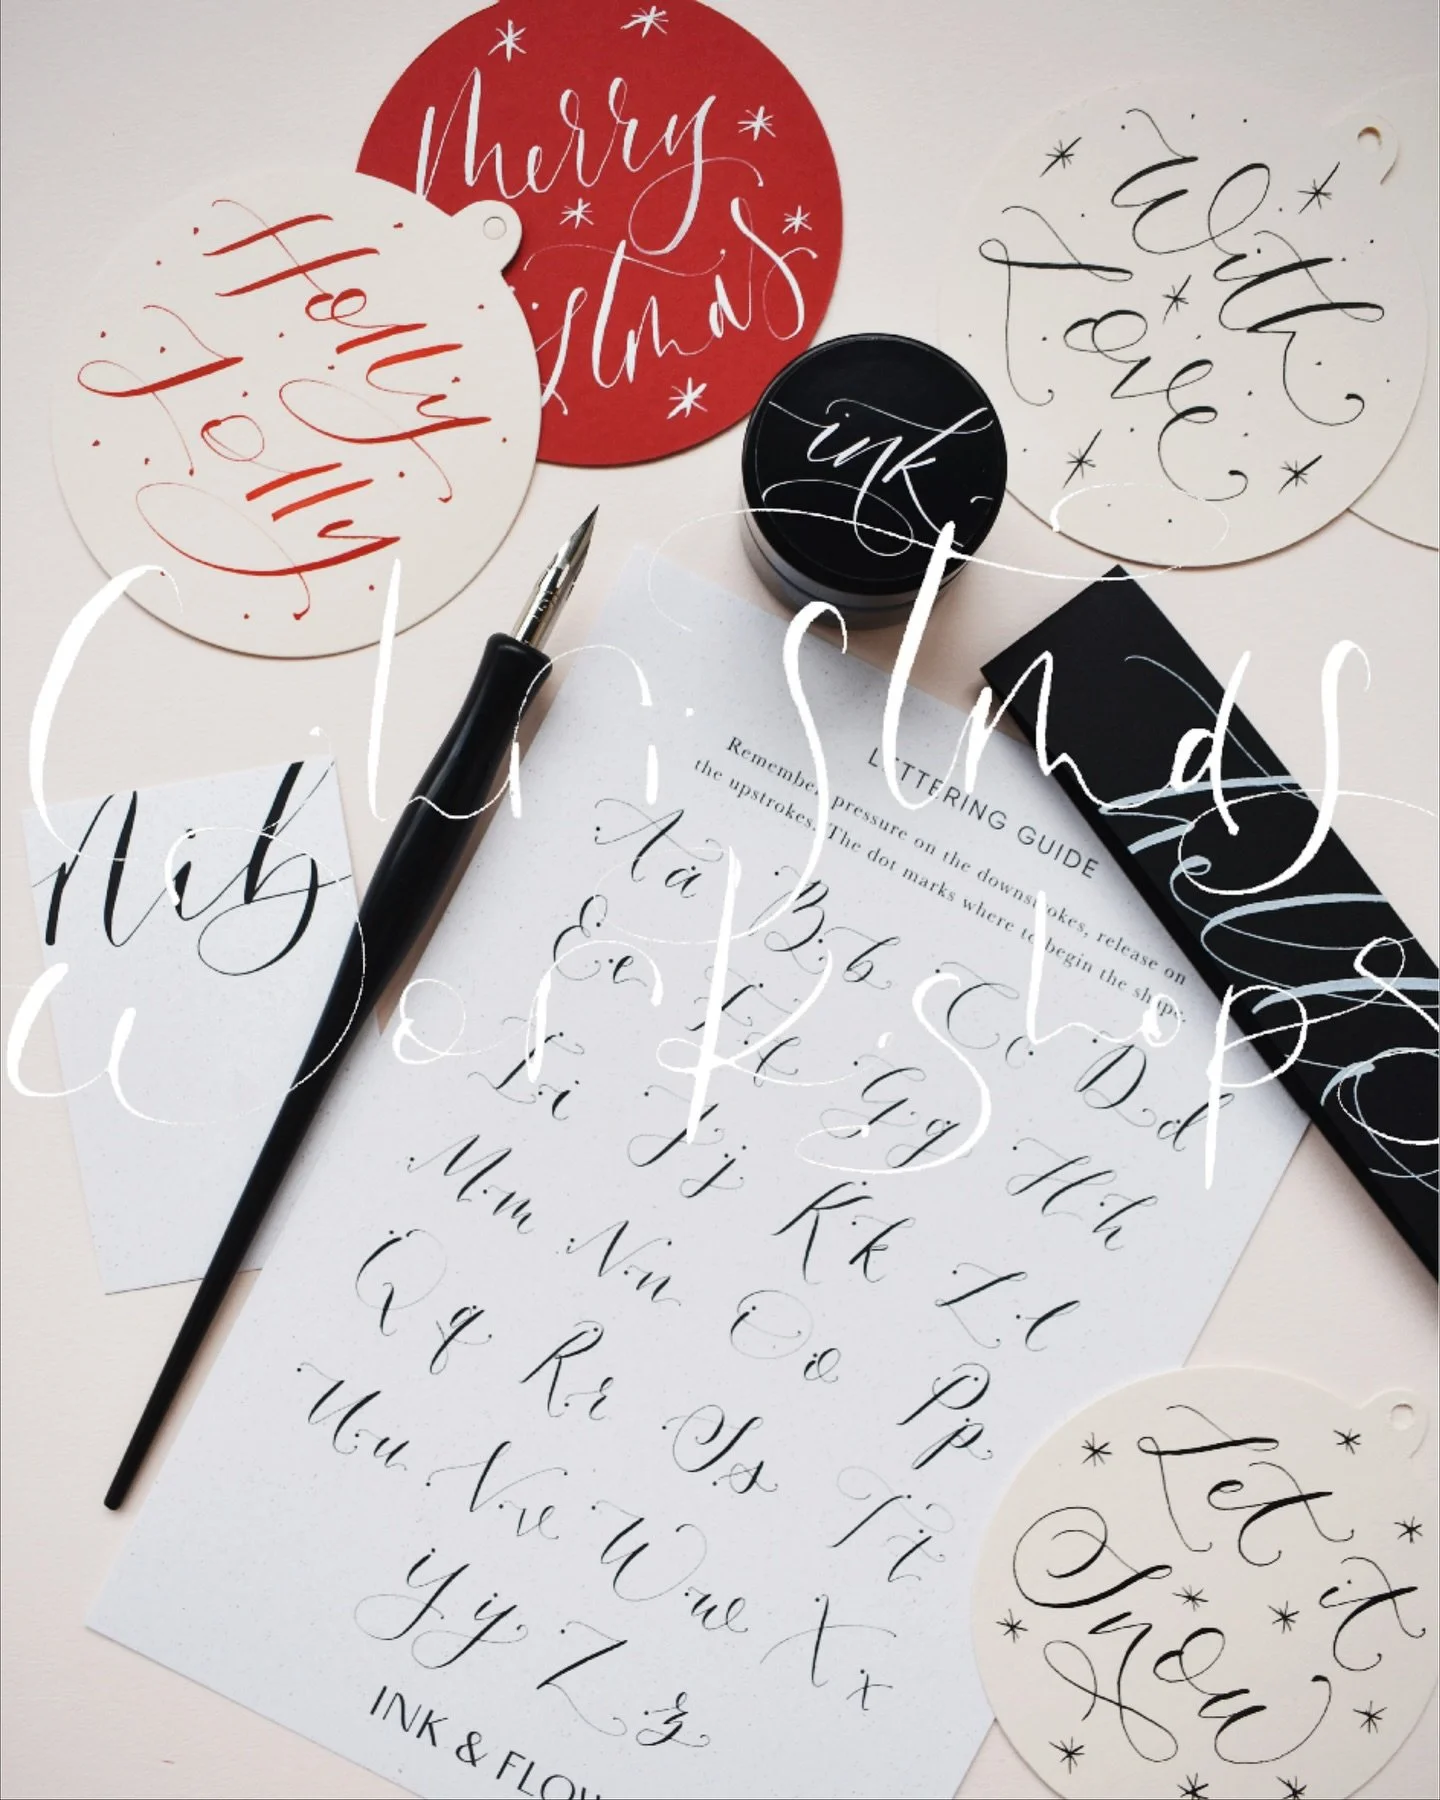 Merry
istmas
Holly
Jolly
With
Love
ink
Christmas
Workshops
Nib
LETTERING GUIDE
Remember, pressure on the downstrokes, release on
the upstrokes. The dot marks where to begin the shape.
Aa Bb Cc Dd
Ee Ff Gg Hh
Ii Jj Kk Ll
Mm Nn Oo Pp
Qq Rr Ss Tt
Uu Vv Ww Xx
Yy Zz
INK & FLOW
Let it
Snow